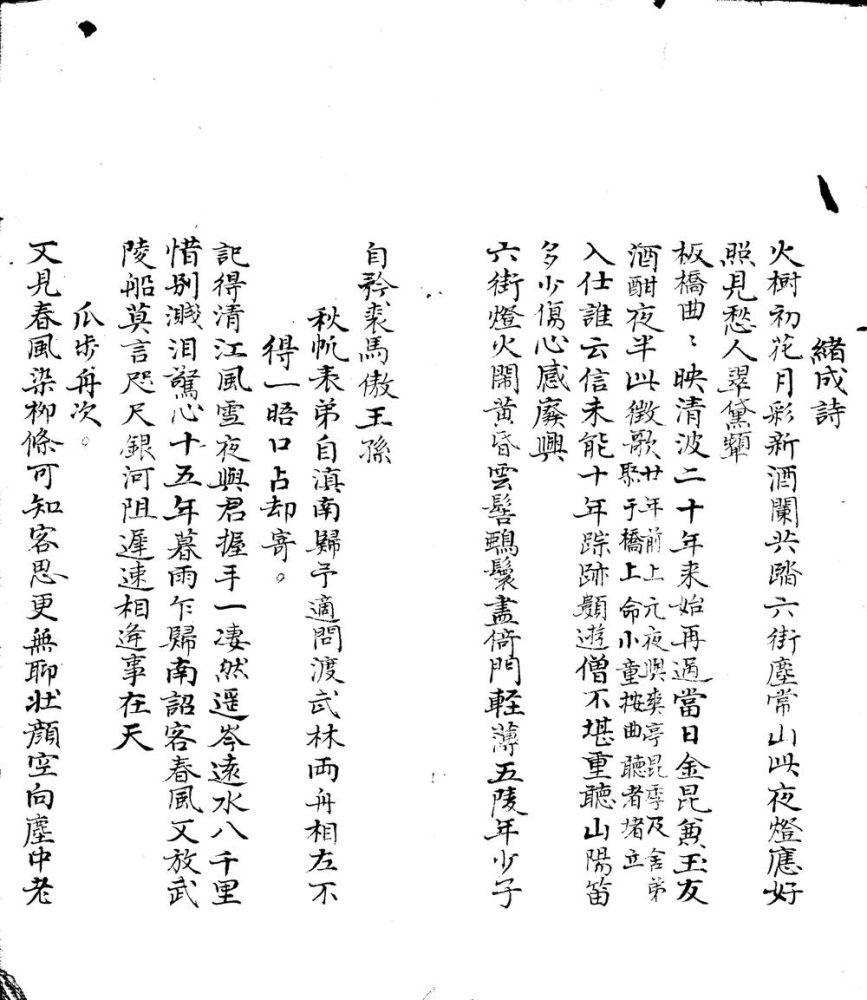 緒成詩
火樹初花月彩新酒闌共踏六街塵常山此夜燈應好
照見愁人翠黛顰
板橋曲〻映清波二十年来始再過當日金昆兼玉友
酒酣夜半此徴歌廿年前上元夜與奕亭昆季及舍弟
聚于橋上命小童按曲聽者堵立
入仕誰云信未能十年踪跡類遊僧不堪重聽山陽笛
多少傷心感廢興
六街燈火鬧黄昏雲髻鵶鬟盡倚門軽薄五陵年少子
自矜裘馬傲王孫
秋帆表弟自滇南歸予適問渡武林両舟相左不
得一晤口占却寄。
記得清江風雪夜與君握手一凄然遥岑遠水八千里
惜别濺泪驚心十五年暮雨乍歸南詔客春風又放武
陵船莫言咫尺銀河阻遲速相逢事在天
瓜步舟次。
又見春風染柳條可知客思更無聊壮顔空向塵中老